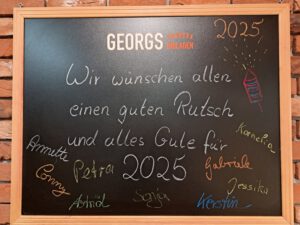 2025
GEORGS
Wir wünschen allen
einen guten Rutsch
und alles Gute für
2025
Annette
Conny
Petra
Astrid
Sonja
Gabriele
Kerstin
Jessika
Kornelia